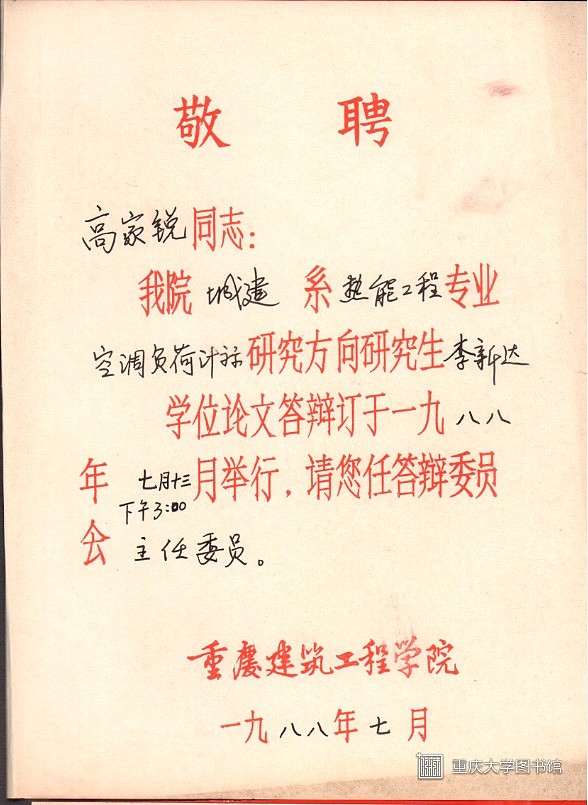 敬聘
高家锐同志：
我院城建系热能工程专业
空调负荷计标研究方向研究生李新达
学位论文答辩订于一九八八
年七月十三月举行，请您任答辩委员
下午3:00
会主任委员。
重庆建筑工程学院
一九八八年七月
重庆大学图书馆